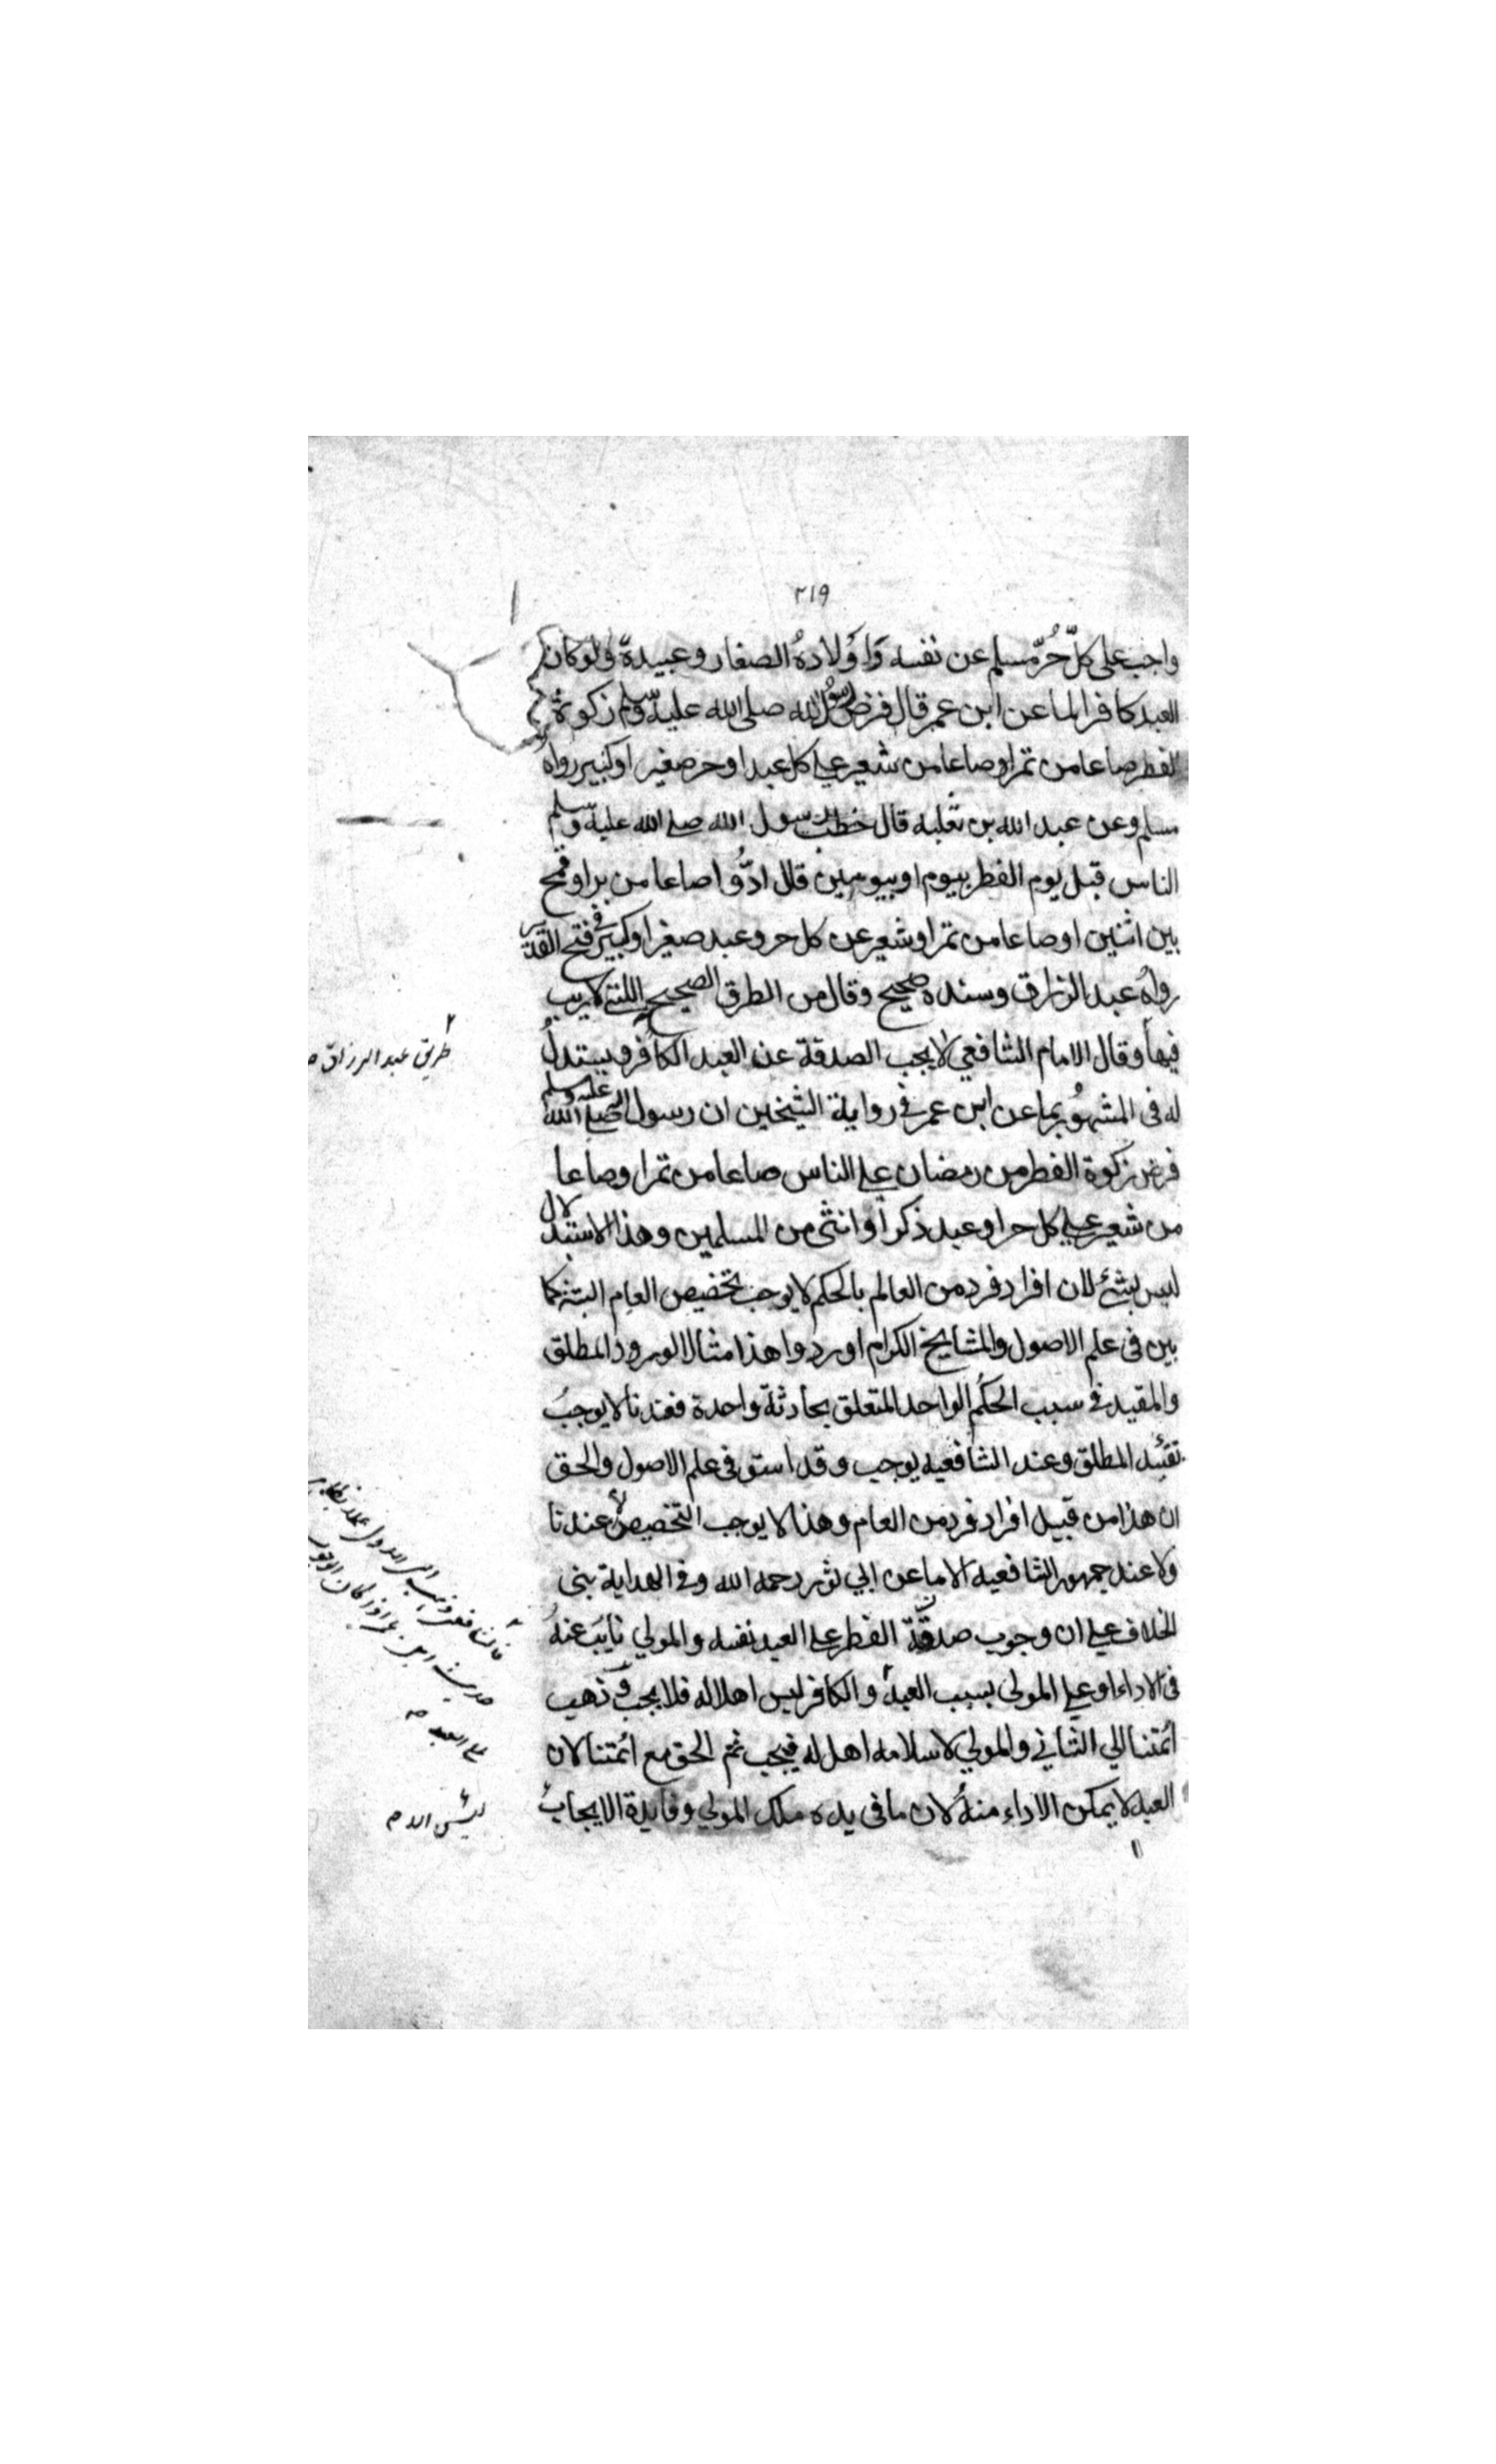 ٢١٩
واجب على كلّ حُرّ مسلم عن نفسه وَاَوْلادهُ الصغار وعبيدة ولوكان
العبد كافرا لما عن ابن عمر قال فرض رسول الله صلى الله عليه وسلم زكوة
الفطر صاعا من تمر او صاعا من شعير على كل عبد او حر صغير او كبير رواه
مسلم وعن عبد الله بن ثعلبه قال خطب رسول الله صلى الله عليه وسلم
الناس قبل يوم الفطر بيوم او بيومين قال ادُّوا صاعا من بر او قمح
بين اثنين او صاعا من تمر او شعير عن كل حر وعبد صغير او كبير فى فتح القدير
رواهُ عبد الرزاق وسنده صحيح وقال من الطرق الصحيح اللتى لا ريب
فيها وقال الامام الشافعي لا يجب الصدقة عن العبد الكافر ويستدلُ
له فى المشهوُر بما عن ابن عمر في رواية الشيخين ان رسول الله صلى الله عليه وسلم
فرض زكوة الفطر من رمضان على الناس صاعا من تمر او صاعا
من شعير على كل حر او عبد ذكر او انثى من المسلمين وهذا الاستدلال
ليس بشئ لان افراد فرد من العالم بالحكم لا يوجب تخصيص العام البتة كما
بين فى علم الاصول والمشايخ الكرام اوردوا هذا مثالا لورود المطلق
والمقيد في سبب الحكم الواحد المتعلق بحادثة واحدة فعندنا لا يوجبُ
تقئيد المطلق وعند الشافعيه يوجب وقد استق فى علم الاصول والحق
ان هذا من قبيل افراد فرد من العام وهذا لا يوجب التخصيص لا عندنا
ولا عند جمهور الشافعيه الا ما عن ابي ثور رحمه الله وفى الهداية بنى
الخلاف على ان وجوب صدقة الفطر على العبد نفسه والمولي نايب عنهُ
فى الاداء او على المولى بسبب العبد والكافر ليس اهلا له فلا يجب وذهب
ائمتنا الي الثاني والمولي لاسلامه اهل له فيجب ثم الحق مع ائمتنا لان
العبد لا يمكن الاداء منهُ لان ما فى يده ملك المولي وفايدة الايجاب
طريق عبد الرزاق
فالشافعى ذهب الى الاول
على العبد